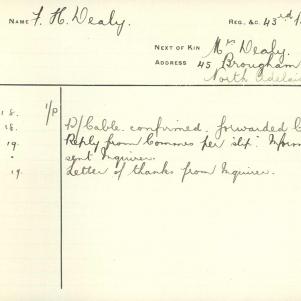 NAME F. H. Dealy. REG., &C. 43rd
NEXT OF KIN Mrs Dealy.
ADDRESS 45 Brougham
North Adelai
18. 1/P
18. P/Cable. confirmed. forwarded
19. Reply from Commes per slip: Inform
" sent Inquirer.
19. Letter of thanks from Inquirer.